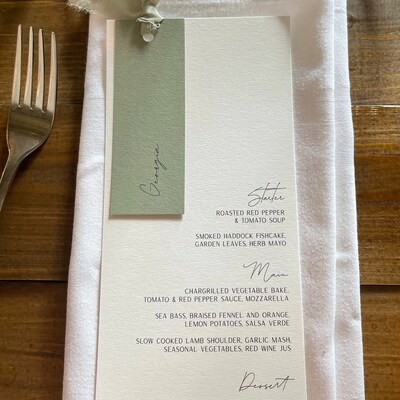 Georgia
Starter
ROASTED RED PEPPER
& TOMATO SOUP
SMOKED HADDOCK FISHCAKE,
GARDEN LEAVES, HERB MAYO
Main
CHARGRILLED VEGETABLE BAKE,
TOMATO & RED PEPPER SAUCE, MOZZARELLA
SEA BASS, BRAISED FENNEL AND ORANGE,
LEMON POTATOES, SALSA VERDE
SLOW COOKED LAMB SHOULDER, GARLIC MASH,
SEASONAL VEGETABLES, RED WINE JUS
Dessert